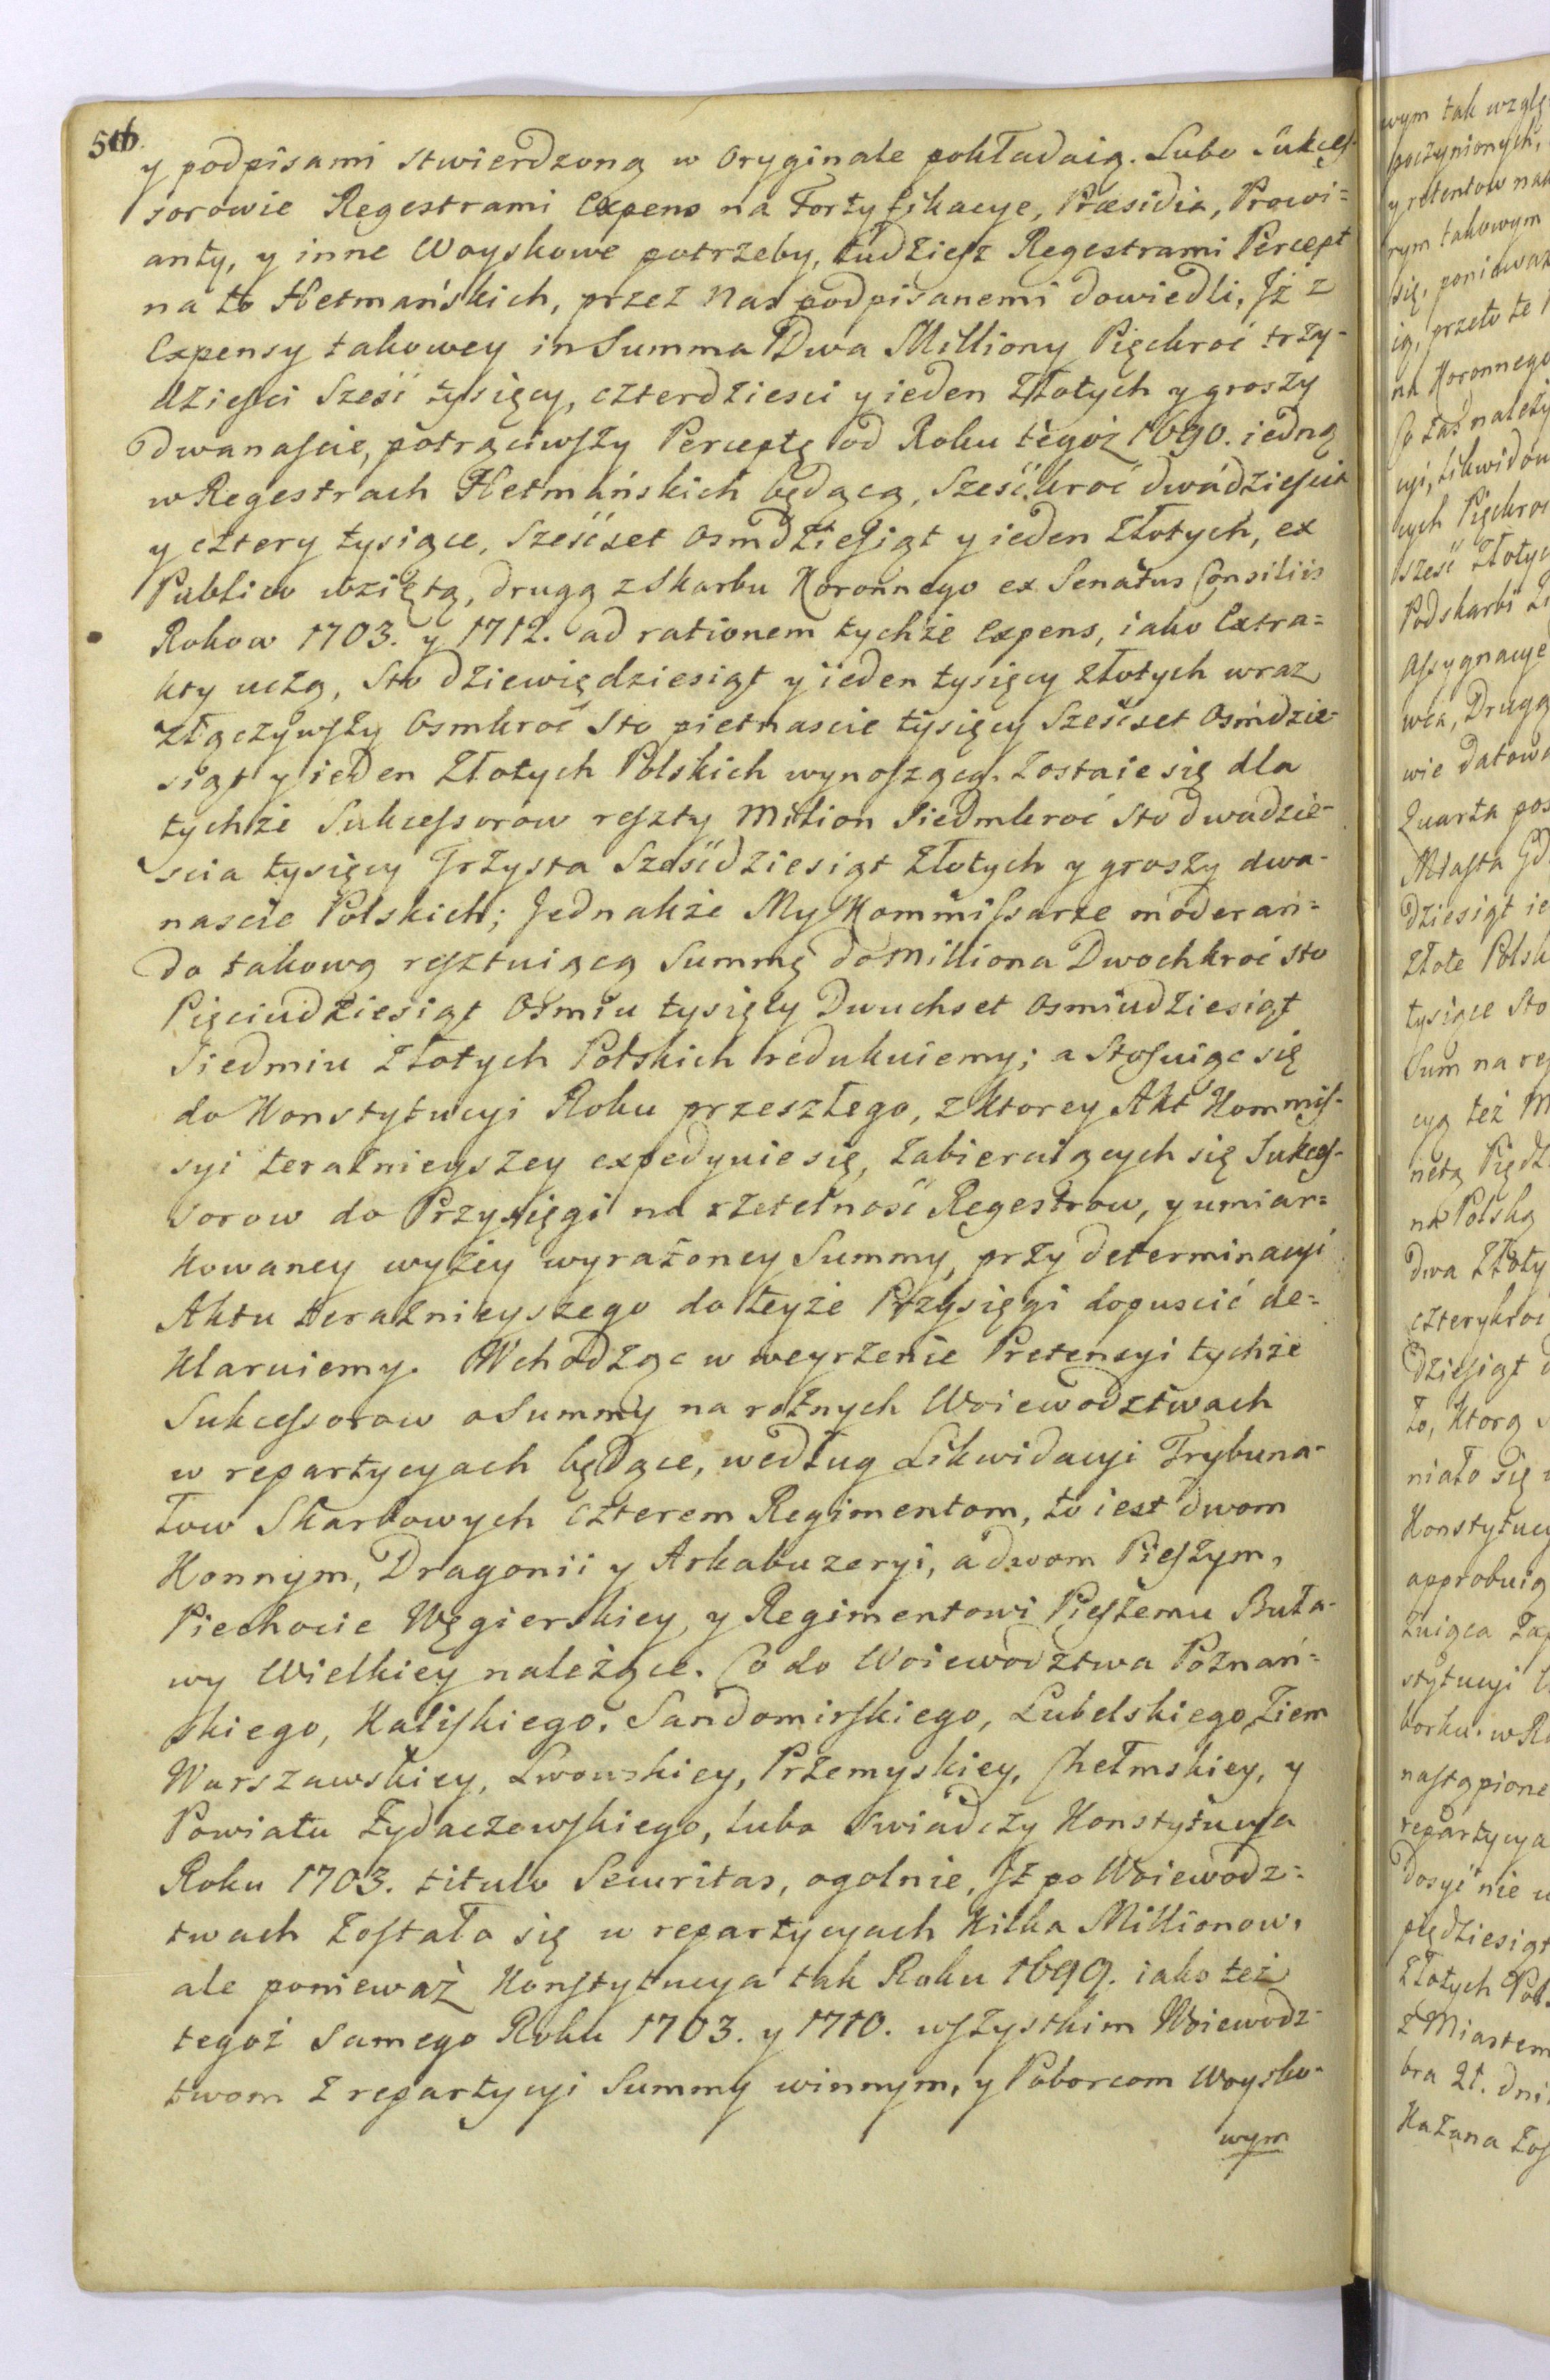 516.
y podpisami stwierdzoną w Oryginale pokładaią. Lubo Sukces-
sorowie Regestrami Expens na Fortyfikacye, Præsidia, Prowi=
anty, y inne Woyskowe potrzeby, tudziesz Regestrami Percept
na to Hetmańskich, przez Nas podpisanemi dowiedli, Jż z
Expensy takowey in Summa Dwa Milliony Pięckroć trzy-
dziesci Sześć tysięcy, czterdziesci y ieden Złotych y groszy
Dwanascie, potrąciwszy Perceptę od Roku tegoż 1690. iedną
w Regestrach Hetmańskich będącą, Sześćkroć dwadziescia
y cztery tysiące, Sześćset Osmdziesiąt y ieden Złotych, ex
Publico wziętą, drugą z Skarbu Koronnego ex Senatus Consiliis
Rokow 1703. y 1712. ad rationem tychże Expens, iako Extra=
kty uczą, Sto dziewiędziesiąt y ieden tysięcy Złotych wraz
złączywszy Osmkroć Sto pietnascie tysięcy Sześćset Osmdzie-
siąt y ieden Złotych Polskich wynoszącą. Zostaie się dla
tychże Sukcessorow reszty Milion Siedmkroć Sto dwadzie-
scia tysięcy Trzysta Sześćdziesiąt Złotych y groszy dwa-
nascie Polskich; Jednakże My Kommissarze moderan=
do takową resztuiącą Summę do Milliona Dwochkroć sto
Pięciudziesiąt Osmiu tysięcy Dwuchset Osmiudziesiąt
Siedmiu Złotych Polskich redukuiemy; a Stosuiąc się
do Konstytucyi Roku przeszłego, z ktorey Akt Kommis-
syi teraźnieyszey expedyuie się, zabieraiących się Sukces-
sorow do Przysięgi na rzetelność Regestrow, y umiar=
kowaney wyżey wyrażoney Summy, przy determinacyi
Aktu teraznieyszego do teyże Przysięgi dopuscić de=
klaruiemy. Wchodząc w weyrzenie Pretensyi tychże
Sukcessorow o Summy na rożnych Woiewodztwach
w repartycyach będące, według Likwidacyi Trybuna-
łow Skarbowych czterem Regimentom, to iest dwom
Konnym, Dragonii y Arkabuzeryi, a dwom Pieszym,
Piechocie Węgierskiey, y Regimentowi Pieszemu Buła-
wy Wielkiey należące. Co do Woiewodztwa Poznań=
skiego, Kaliskiego, Sandomirskiego, Lubelskiego, Ziem
Warszawskiey, Lwowskiey, Przemyskiey, Chełmskiey, y
Powiatu Żydaczewskiego, lubo swiadczy Konstytucya
Roku 1703. titulo Securitas, ogolnie, Jż po Woiewodz=
twach zostało się w repartycyach kilka Millionow,
ale ponieważ Konstytucya tak Roku 1699. iako też
tegoż samego Roku 1703. y 1710. wszystkim Woiewodz-
twom z repartycyi Summy winnym, y Poborcom Woysko-
wym
wym tak wzglę
poczynionych,
y retentow nal
rym takowym
się, poniewaz
ią, przeto te
na Koronnego
Co zas należy
cyi, likwidow
cych Pięckroc
sześć Złotyc
Podskarbi
Assygnacye
wca, Drugą
wie datowa
Quarta pos
Miasta Gd
dziesiąt ie
Złote Polsk
tysiące Sto
Sum na re
cyą też M
netą Piędz
na Polską
dwa Złoty
czterykroc
dziesiąt d
to, ktorą
niało się
Konstytucy
approbuią
stytucyi
borku. w R
nastąpione
repartycya
dosyć nie
pięдziesiąt
Złotych Pol.
z Miastem
bra 21. dni
kazana zos